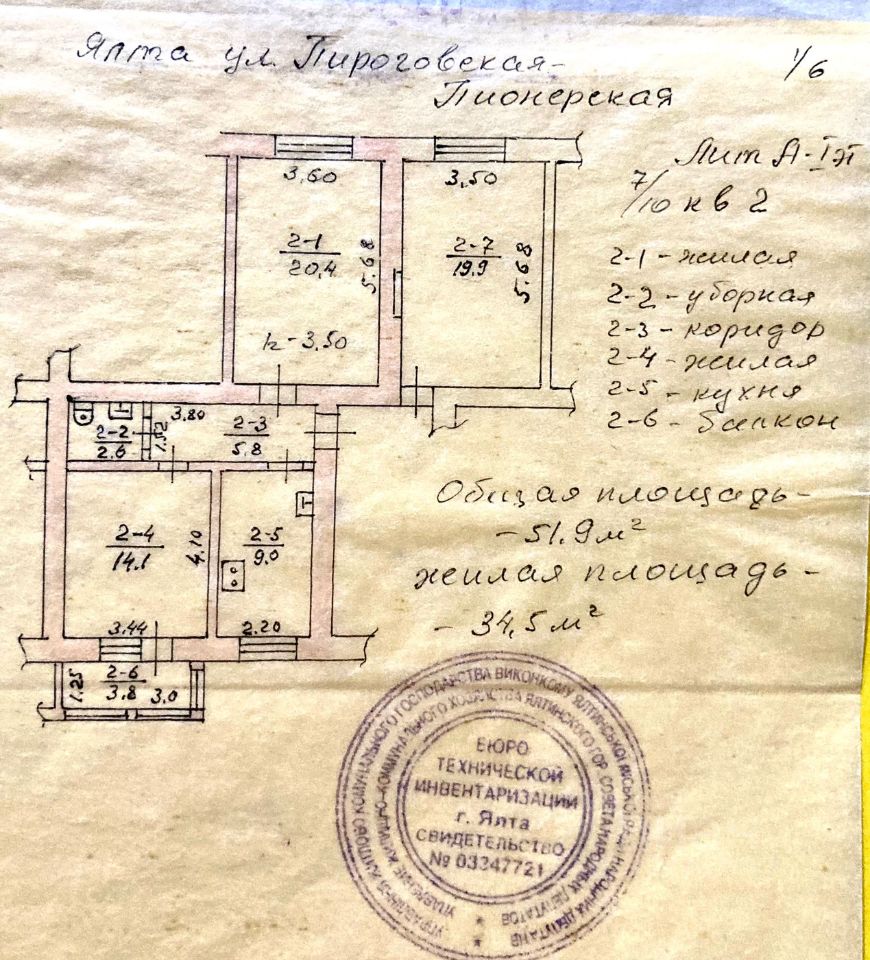 Ялта ул. Пироговская-
Пионерская
1/6
Лит А-Iэт
7/10 кв 2
2-1 - жилая
2-2 - уборная
2-3 - коридор
2-4 - жилая
2-5 - кухня
2-6 - балкон
Общая площадь-
- 51.9 м²
жилая площадь -
- 34,5 м²
3.60
2-1
20,4
5.68
h-3.50
3.50
2-7
19.9
5.68
2-2
2.6
1.52
3.80
2-3
5.8
2-4
14.1
4.10
3.44
2-5
9.0
2.20
2-6
3.8
1.25
3.0
БЮРО
ТЕХНИЧЕСКОЙ
ИНВЕНТАРИЗАЦИИ
г. Ялта
СВИДЕТЕЛЬСТВО
№ 03347721